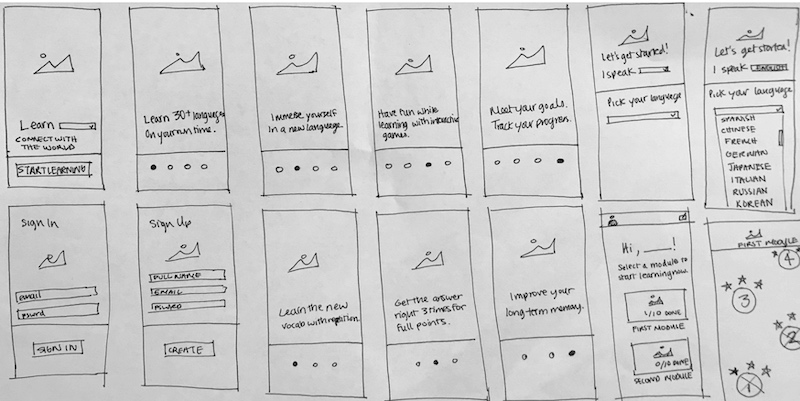 Learn
CONNECT WITH
THE WORLD
START LEARNING
Learn 30+ languages
On your own time.
Immerse yourself
In a new language.
Have fun while
learning with interactive
games.
Meet your goals.
Track your progress.
Let's get started!
I speak
Pick your language
Let's get started!
I speak ENGLISH
Pick your language
SPANISH
CHINESE
FRENCH
GERMAN
JAPANESE
ITALIAN
RUSSIAN
KOREAN
Sign In
email
psword
SIGN IN
Sign Up
FULL NAME
EMAIL
PSWORD
CREATE
Learn the new
vocab with repetition.
Get the answer
right 3 times for
full points.
Improve your
long-term memory.
Hi, ____!
Select a module to
start learning now.
1/10 DONE
FIRST MODULE
0/10 DONE
SECOND MODULE
FIRST MODULE
4
3
2
1